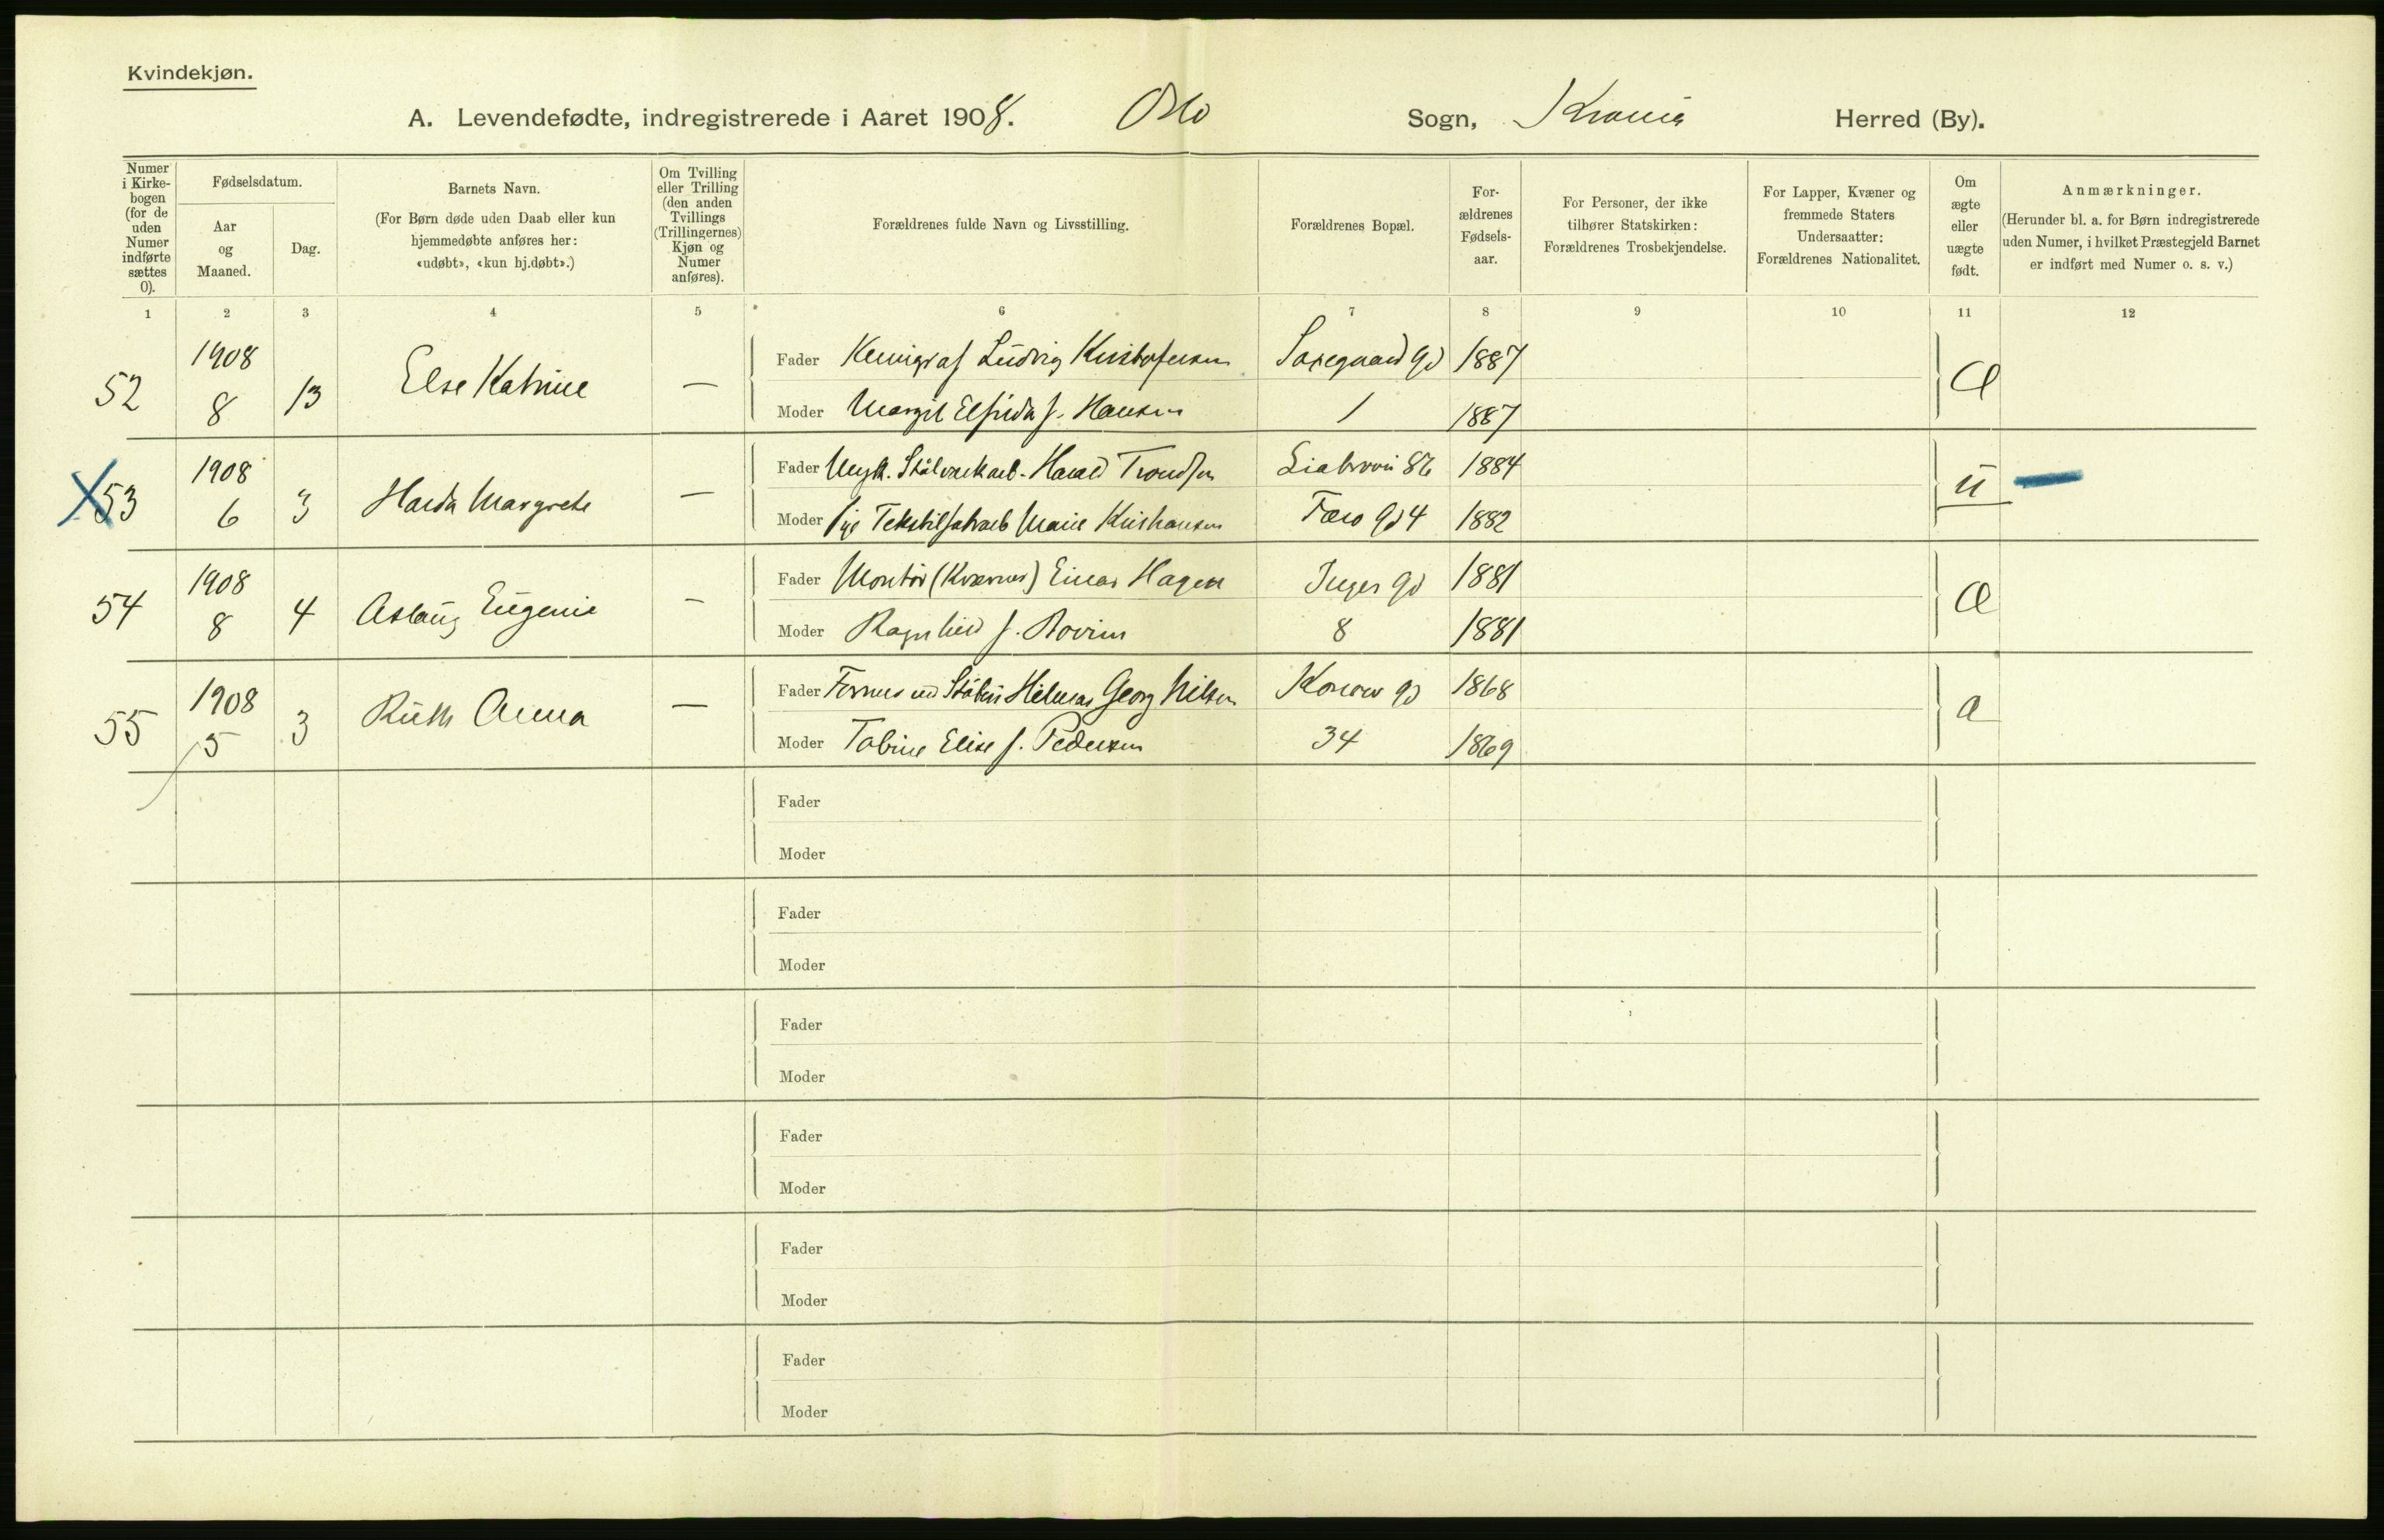 Kvindekjøn.
A. Levendefødte, indregistrerede i Aaret 1908. Oslo Sogn, Krania Herred (By).
Numer i Kirkebogen (for de uden Numer indførte sættes 0).
Fødselsdatum.
Aar og Maaned.
Dag.
Barnets Navn.
(For Børn døde uden Daab eller kun hjemmedøbte anføres her: «udøbt», «kun hj.døbt».)
Om Tvilling eller Trilling (den anden Tvillings (Trillingernes) Kjøn og Numer anføres).
Forældrenes fulde Navn og Livsstilling.
Forældrenes Bopæl.
Forældrenes Fødselsaar.
For Personer, der ikke tilhører Statskirken: Forældrenes Trosbekjendelse.
For Lapper, Kvæner og fremmede Staters Undersaatter: Forældrenes Nationalitet.
Om ægte eller uægte født.
Anmærkninger.
(Herunder bl. a. for Børn indregistrerede uden Numer, i hvilket Præstegjeld Barnet er indført med Numer o. s. v.)
1 2 3 4 5 6 7 8 9 10 11 12
52 1908 8 13 Else Katrine —
Fader Kemigraf Ludvig Kristofersen Saxegaard gd 1887
Moder Margit Elfrida f. Hansen 1 1887
Æ
X 53 1908 6 3 Margrete —
Fader Ungk. Stålverkarb. Harald Trondsen Liabrovei 86 1884
Moder Pige Tekstilfabrarb Marie Kristiansen gd 4 1882
u —
54 1908 8 4 Aslaug Eugenie –
Fader Montör (Kværner) Einar Hagen Inges gd 1881
Moder Ragnhild f. Bovim 8 1881
Æ
55 1908 5 3 Ruth Anna —
Fader Hilmar Georg Nilsen Konow gd 1868
Moder Tobine Elise f. Pedersen 34 1869
æ
Fader
Moder
Fader
Moder
Fader
Moder
Fader
Moder
Fader
Moder
Fader
Moder